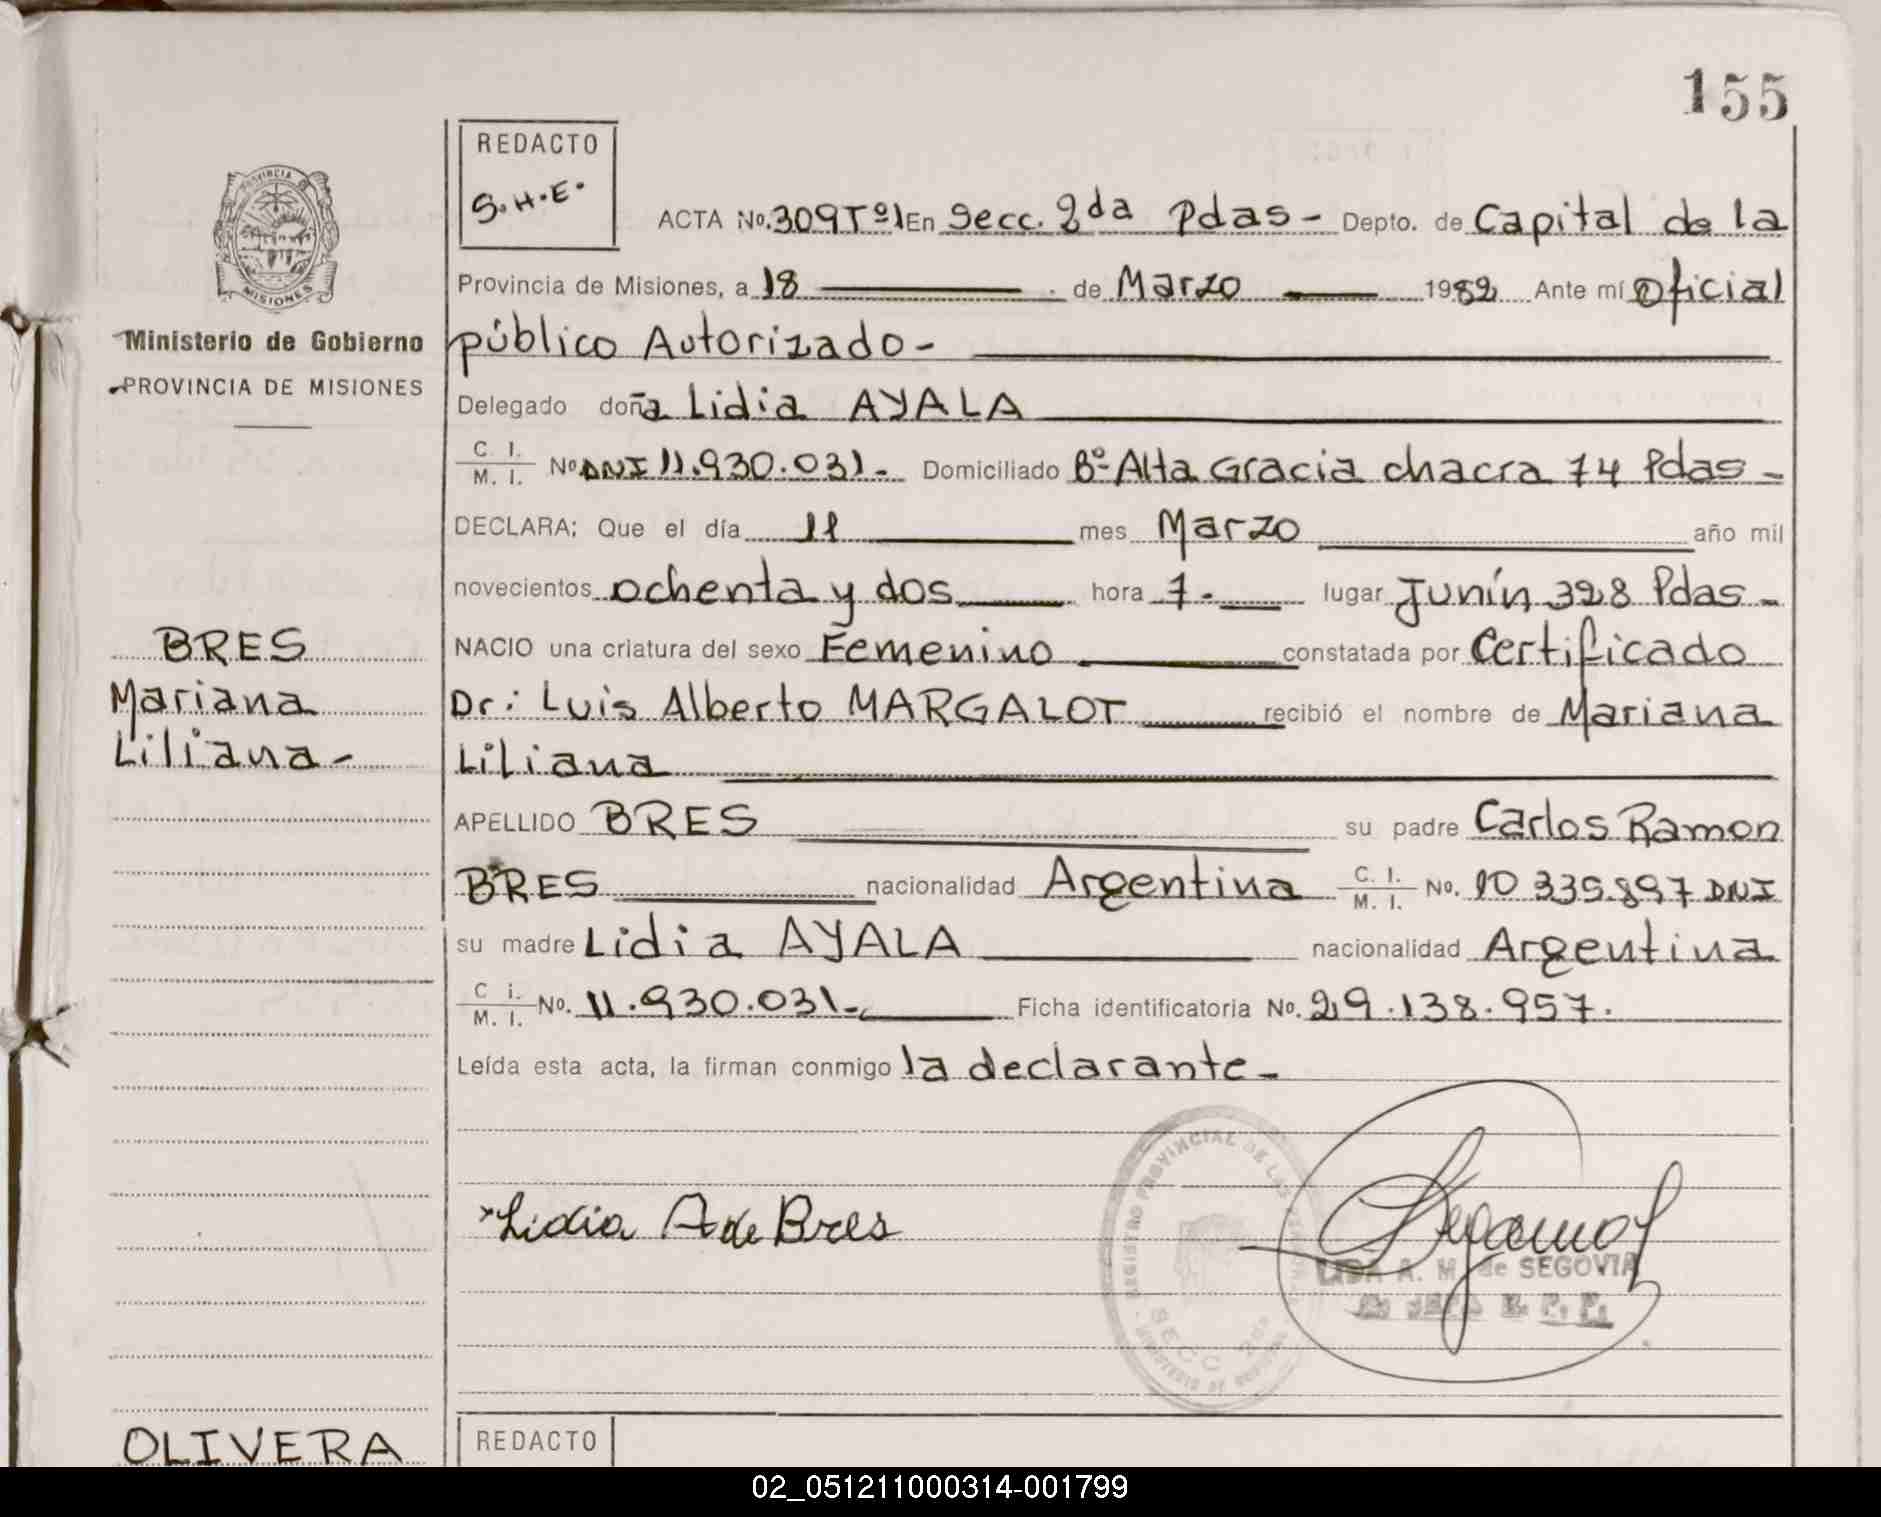 155
REDACTO
S.H.E.
ACTA No. 309 Tº1 En Secc. 2da Pdas - Depto. de Capital de la
PROVINCIA
MISIONES
Provincia de Misiones, a 18 de Marzo 1982 Ante mí Oficial
Ministerio de Gobierno
público Autorizado -
PROVINCIA DE MISIONES
Delegado doña Lidia AYALA
C. I.
M. I. No DNI 11.930.031 - Domiciliado Bº Alta Gracia chacra 74 Pdas -
DECLARA; Que el día 11 mes Marzo año mil
novecientos ochenta y dos hora 7 - lugar Junín 328 Pdas -
BRES
Mariana
Liliana -
NACIO una criatura del sexo Femenino constatada por Certificado
Dr: Luis Alberto MARGALOT recibió el nombre de Mariana
Liliana
APELLIDO BRES su padre Carlos Ramon
BRES nacionalidad Argentina C. I. M. I. No. 10 335.897 DNI
su madre Lidia AYALA nacionalidad Argentina
C i.
M. I. No. 11.930.031 - Ficha identificatoria No. 29.138.957.
Leída esta acta, la firman conmigo la declarante -
Lidia A de Bres
REGISTRO PROVINCIAL DE LAS
SECC 2da
LIDA A. M. de SEGOVIA
OLIVERA
REDACTO
02_051211000314-001799